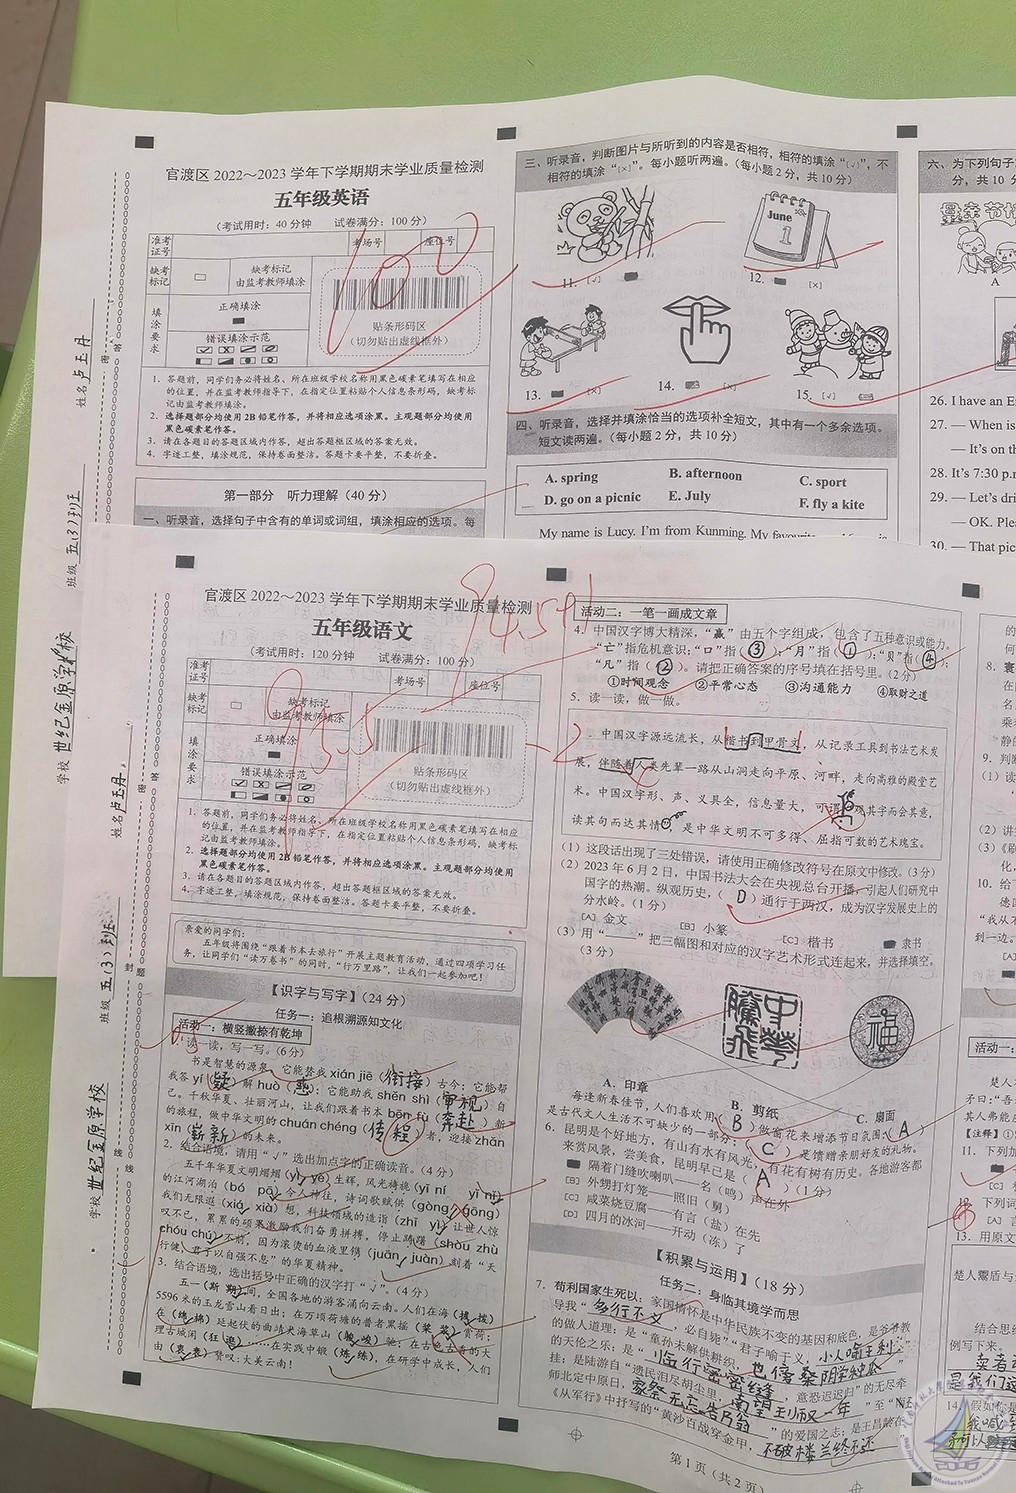 官渡区 2022～2023 学年下学期期末学业质量检测
五年级英语
（考试用时：40 分钟 试卷满分：100 分）
准考证号
考场号
座位号
缺考标记
缺考标记
由监考教师填涂
填涂要求
正确填涂
错误填涂示范
贴条形码区
（切勿贴出虚线框外）
100
1. 答题前，同学们务必将姓名、所在班级学校名称用黑色碳素笔填写在相应
的位置，并在监考教师指导下，在指定位置粘贴个人信息条形码，缺考标
记由监考教师填涂。
2. 选择题部分均使用 2B 铅笔作答，并将相应选项涂黑。主观题部分均使用
黑色碳素笔作答。
3. 请在各题目的答题区域内作答，超出答题框区域的答案无效。
4. 字迹工整，填涂规范，保持卷面整洁。答题卡要平整，不要折叠。
第一部分 听力理解（40 分）
一、听录音，选择句子中含有的单词或词组，填涂相应的选项。每
学校 世纪金原学校
班级 五(3)班
姓名 卢玉丹
三、听录音，判断图片与所听到的内容是否相符，相符的填涂“[√]”，不
相符的填涂“[×]”。每小题听两遍。（每小题 2 分，共 10 分）
June
1
11. [√]
12. [×]
13. [×]
14. [×]
15. [√]
四、听录音，选择并填涂恰当的选项补全短文，其中有一个多余选项。
短文读两遍。（每小题 2 分，共 10 分）
A. spring
B. afternoon
C. sport
D. go on a picnic
E. July
F. fly a kite
My name is Lucy. I'm from Kunming. My favourite
六、为下列句子
分，共 10 分
A
26. I have an E
27. — When is
— It's on th
28. It's 7:30 p.m
29. — Let's dri
— OK. Plea
30. — That pic
官渡区 2022～2023 学年下学期期末学业质量检测
五年级语文
（考试用时：120 分钟 试卷满分：100 分）
94.5+1
95.5
准考证号
考场号
座位号
缺考标记
缺考标记
由监考教师填涂
填涂要求
正确填涂
错误填涂示范
贴条形码区
（切勿贴出虚线框外）
1. 答题前，同学们务必将姓名、所在班级学校名称用黑色碳素笔填写在相应
的位置，并在监考教师指导下，在指定位置粘贴个人信息条形码，缺考标
记由监考教师填涂。
2. 选择题部分均使用 2B 铅笔作答，并将相应选项涂黑。主观题部分均使用
黑色碳素笔作答。
3. 请在各题目的答题区域内作答，超出答题框区域的答案无效。
4. 字迹工整，填涂规范，保持卷面整洁。答题卡要平整，不要折叠。
亲爱的同学们：
五年级将围绕“跟着书本去旅行”开展主题教育活动，通过四项学习任
务，让同学们“读万卷书”的同时，“行万里路”，让我们一起参加吧！
【识字与写字】（24 分）
任务一：追根溯源知文化
活动一：横竖撇捺有乾坤
读一读，写一写。（6 分）
书是智慧的源泉，它能替我 xián jiē（衔接）古今；它能帮
我答 yí（疑）解 huò（惑）；它能助我 shěn shì（审视）自
己。千秋华夏、壮丽河山，让我们跟着书本 bēn fù（奔赴）新
的旅程，做中华文明的 chuán chéng（传程）者，迎接 zhǎn
xīn（崭新）的未来。
2. 结合语境，请用“√”选出加点字的正确读音。（4 分）
五千年华夏文明熠熠（yì yè）生辉，风光旖旎（yī ní yǐ nǐ）
的江河湖泊（bó pō）令人神往，诗词歌赋供（gòng gōng）
我们无限遐（xiá xià）想，科技领域的造诣（zhǐ yì）让世人惊
叹不已，累累的硕果激励我们奋勇拼搏，停止踌躇（shòu zhù
chóu chú）不前，因为滚烫的血液里镌（juān juàn）刻着“天
行健，君子以自强不息”的华夏精神。
3. 结合语境，选出括号中正确的汉字打“√”。（4 分）
五一（斯 期）间，全国各地的游客涌向云南。人们在海（拔 拨）
5596 米的玉龙雪山看日出；在万顷荷塘的普者黑摇（桨 浆）赏荷；
在（绵 棉）延起伏的曲靖大海草山（骏 峻）驰；在古色古香的大
理古城闲（狂 逛）……在实践中锻（炼 练），在研学中成长，人们
由（衷 哀）赞叹：大美云南！
学校 世纪金原学校
班级 五(3)班
姓名 卢玉丹
活动二：一笔一画成文章
4. 中国汉字博大精深，“赢”由五个字组成，包含了五种意识或能力。
“亡”指危机意识；“口”指（③）；“月”指（①）；“贝”指（④）；
“凡”指（②）。请把正确答案的序号填在括号里。（2 分）
①时间观念 ②平常心态 ③沟通能力 ④取财之道
5. 读一读，做一做。
中国汉字源远流长，从楷书到甲骨文，从记录工具到书法艺术发
展，伴随着人类先辈一路从山洞走向平原、河畔，走向高雅的殿堂艺
术。中国汉字形、声、义具全，信息量大，可谓观其字而会其意，
读其句而达其情，是中华文明不可多得、屈指可数的艺术瑰宝。
-2
（1）这段话出现了三处错误，请使用正确修改符号在原文中修改。（3 分）
（2）2023 年 6 月 2 日，中国书法大会在央视总台开播，引起人们研究中
国字的热潮。纵观历史，（D）通行于两汉，成为汉字发展史上的
分水岭。（1 分）
[A] 金文
[B] 小篆
[C] 楷书
隶书
（3）用“——”把三幅图和对应的汉字艺术形式连起来，并选择填空。
（3 分）
中华腾飞
福
A. 印章
B. 剪纸
C. 扇面
每逢新春佳节，人们喜欢用（B）做窗花来增添节日氛围；（A）
是古代文人生活不可缺少的一部分；（C）是馈赠亲朋好友的礼物。
6. 昆明是个好地方，有山有水有风光，有花有树有历史。各地游客都
来赏风景，尝美食，昆明早已是（A）（1 分）
隔着门缝吹喇叭——名（鸣）声在外
[B] 外甥打灯笼——照旧（舅）
[C] 咸菜烧豆腐——有言（盐）在先
[D] 四月的冰河——开动（冻）了
【积累与运用】（18 分）
任务二：身临其境学而思
7. 苟利国家生死以：家国情怀是中华民族不变的基因和底色，是爷爷教
导我“多行不义，必自毙”“君子喻于义，小人喻于利”
的做人道理；是“童孙未解供耕织，也傍桑阴学种瓜”
的天伦之乐；是“临行密密缝，意恐迟迟归”的无尽牵
挂；是陆游自“遗民泪尽胡尘里，南望王师又一年”至“王
师北定中原日，家祭无忘告乃翁”的爱国之志；是王昌龄在
《从军行》中抒写的“黄沙百战穿金甲，不破楼兰终不还
第 1 页（共 2 页）